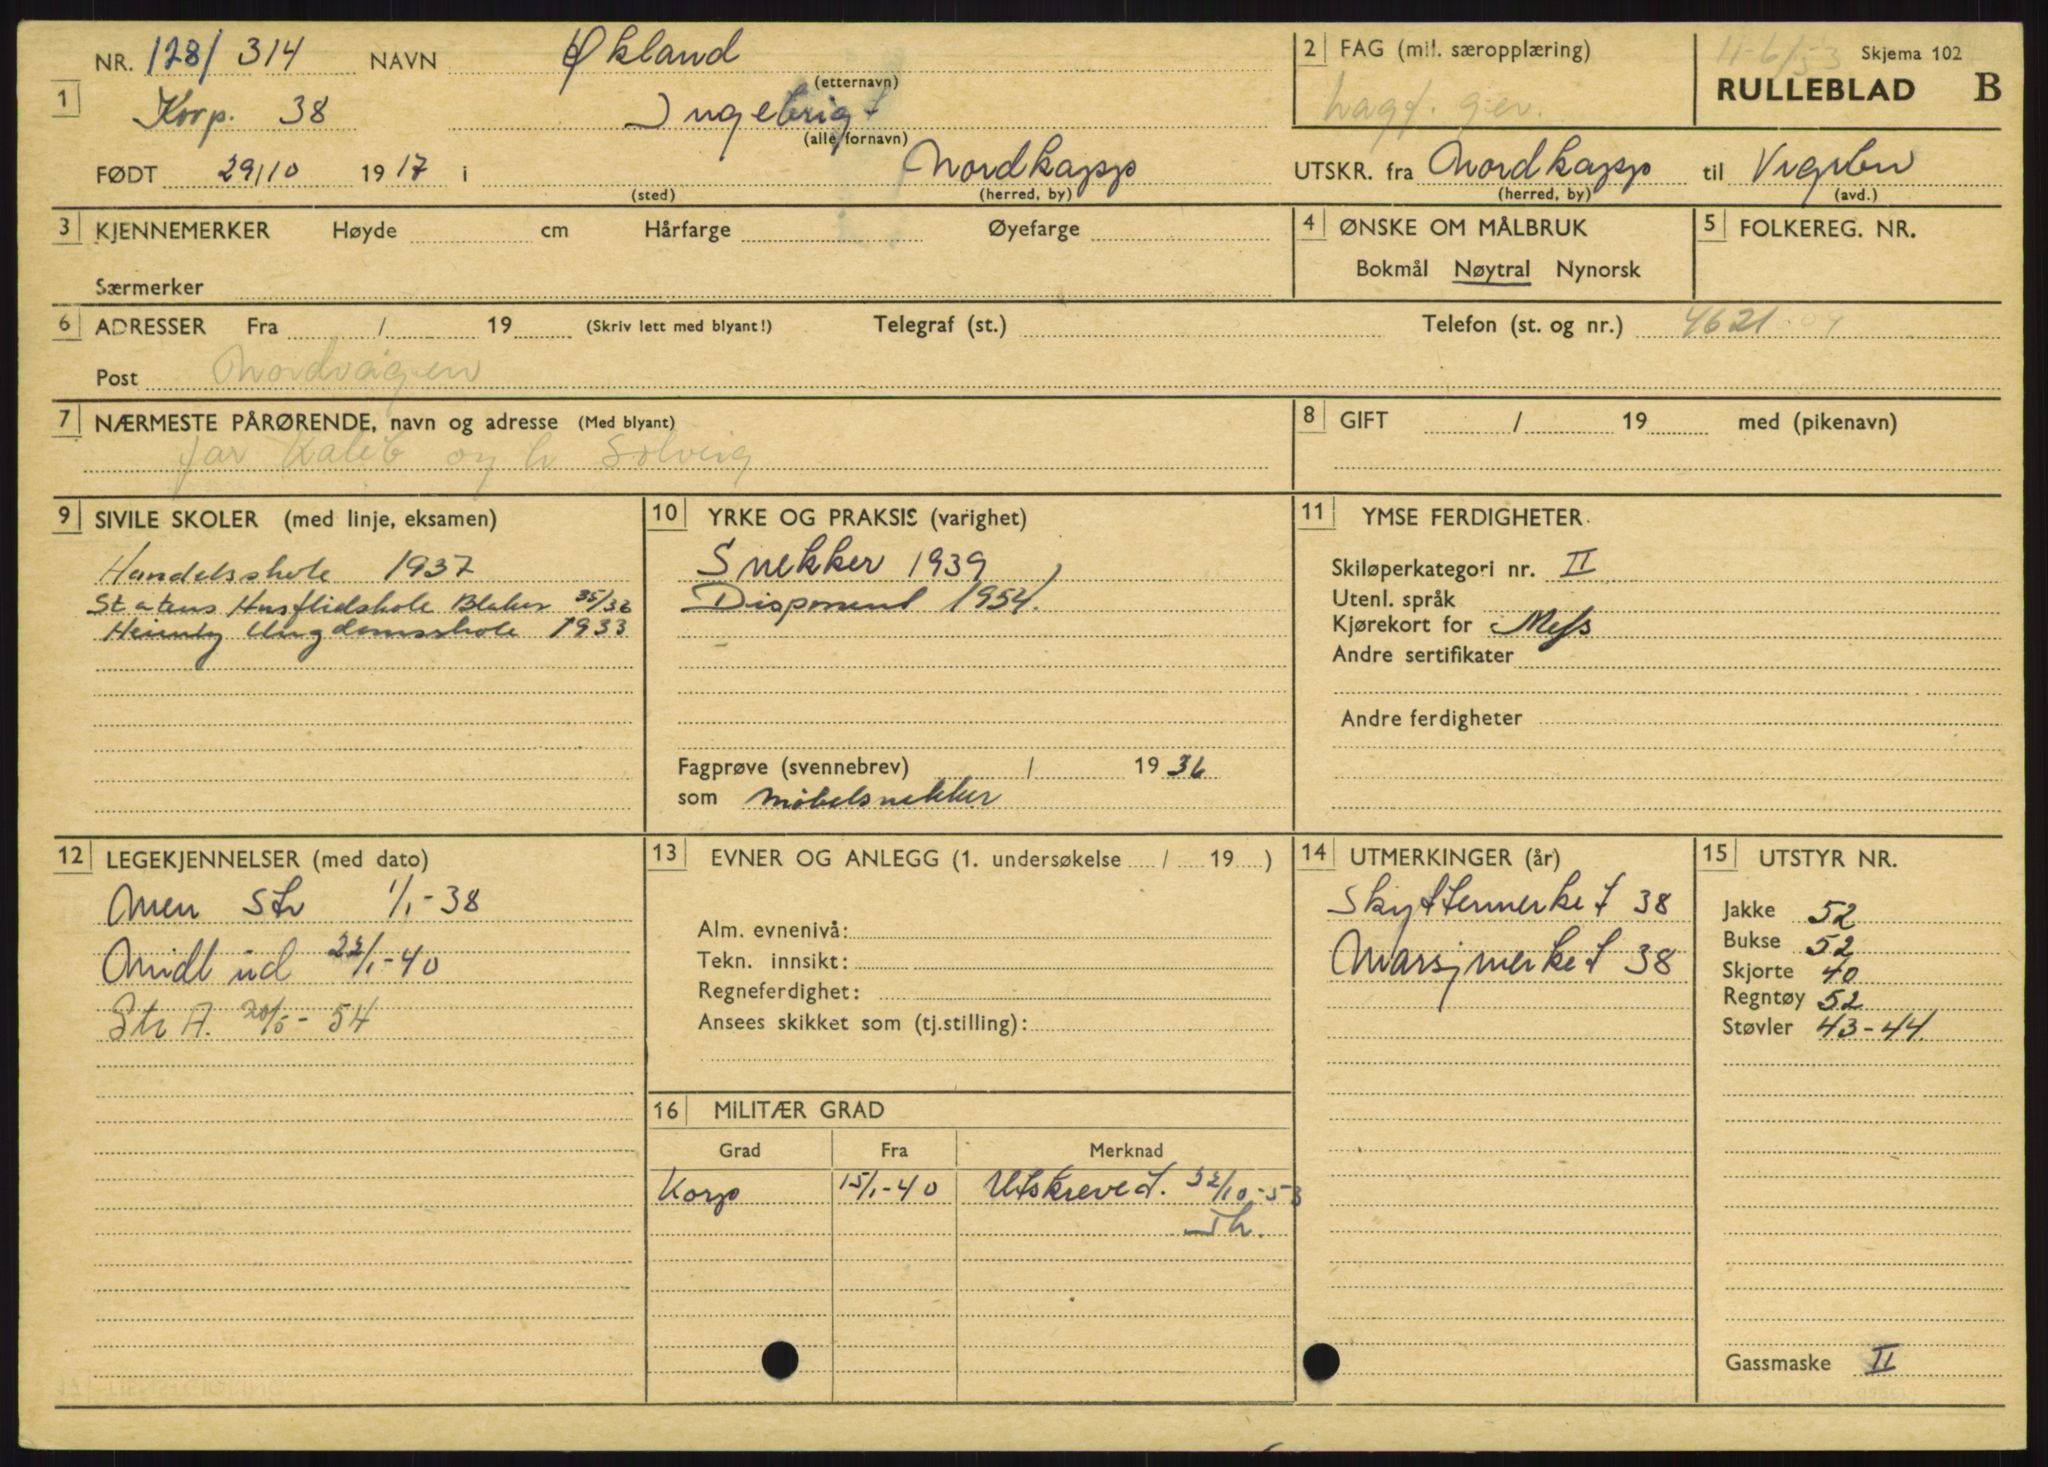 NR. 128/ 314 NAVN Økland
(etternavn)
2 FAG (mil. særopplæring)
4-6/53 Skjema 102
RULLEBLAD B
1 Korp. 38 Ingebrigt
(alle fornavn)
Lagf. gev.
FØDT 29/10 1917 i Nordkapp
(sted) (herred, by)
UTSKR. fra Nordkapp til
(herred, by) (avd.)
3 KJENNEMERKER Høyde cm Hårfarge Øyefarge
Særmerker
4 ØNSKE OM MÅLBRUK
Bokmål Nøytral Nynorsk
5 FOLKEREG. NR.
6 ADRESSER Fra / 19 (Skriv lett med blyant!) Telegraf (st.) Telefon (st. og nr.) 4621
Post Nordvågen
7 NÆRMESTE PÅRØRENDE, navn og adresse (Med blyant)
far Kaleb og h Solveig
8 GIFT / 19 med (pikenavn)
9 SIVILE SKOLER (med linje, eksamen)
Handelsskole 1937
Statens Husflidskole Blaker 35/36
Heimly Ungdomsskole 1933
10 YRKE OG PRAKSIS (varighet)
Snekker 1939
Disponent 1954.
Fagprøve (svennebrev) / 1936
som møbelsnekker
11 YMSE FERDIGHETER
Skiløperkategori nr. II
Utenl. språk
Kjørekort for
Andre sertifikater
Andre ferdigheter
12 LEGEKJENNELSER (med dato)
Men Str 1/1-38
Midl ud 22/1-40
Str A. 20/5-54
13 EVNER OG ANLEGG (1. undersøkelse / 19 )
Alm. evnenivå:
Tekn. innsikt:
Regneferdighet:
Ansees skikket som (tj.stilling):
14 UTMERKINGER (år)
Skyttermerket 38
Marsjmerket 38
15 UTSTYR NR.
Jakke 52
Bukse 52
Skjorte 40
Regntøy 52
Støvler 43-44.
Gassmaske II
16 MILITÆR GRAD
Grad Fra Merknad
Korp 15/1-40 Utskreved. 22/10-53
Th.